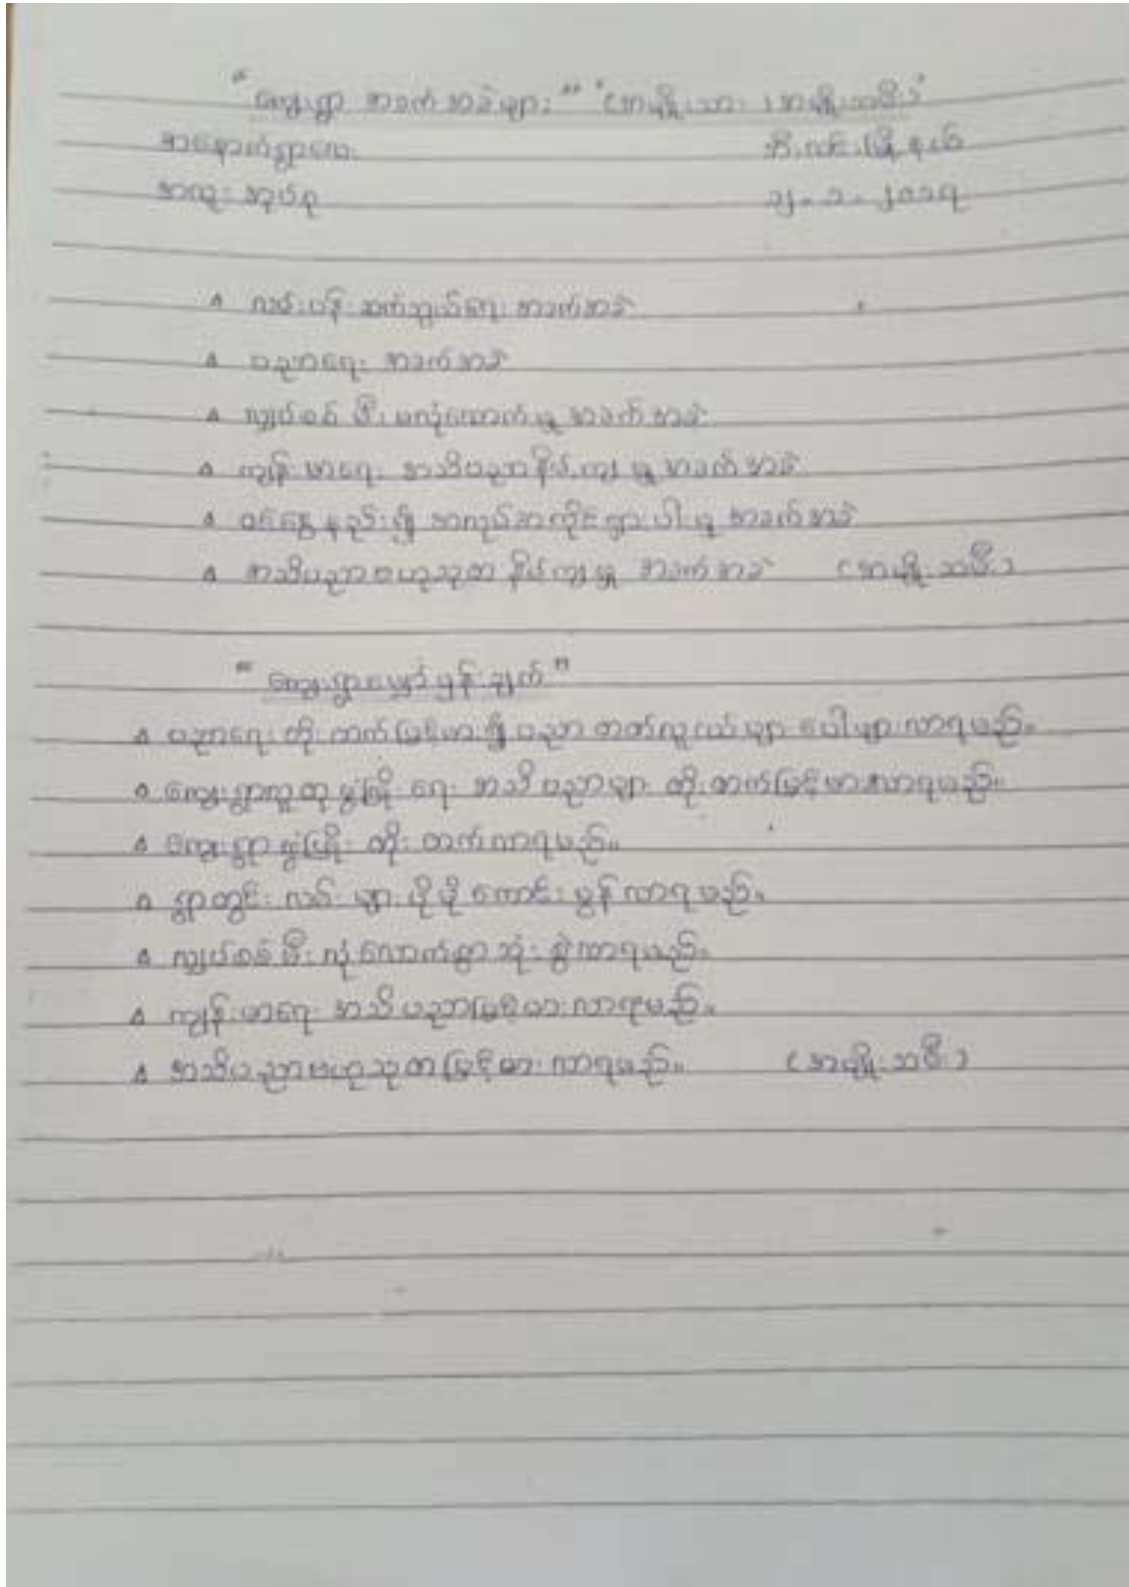 “ ကျေးရွာ အခက်အခဲများ ” (အမျိုးသား၊ အမျိုးသမီး)
အနောက်ရွာမ ဘီးလင်းမြို့နယ်
အလူး အုပ်စု ၁၂-၁-၂၀၁၇
လမ်းပန်း ဆက်သွယ်ရေး အခက်အခဲ
ပညာရေး အခက်အခဲ
လျှပ်စစ် မီး မလုံလောက်မှု အခက်အခဲ
ကျန်းမာရေး အသိပညာ နိမ့်ကျမှု အခက်အခဲ
ဝင်ငွေနည်း၍ အလုပ်အကိုင်ရှားပါးမှု အခက်အခဲ
အသိပညာ ဗဟုသုတ နိမ့်ကျမှု အခက်အခဲ (အမျိုးသမီး)
“ ကျေးရွာမျှော်မှန်းချက် ”
ပညာရေး တိုးတက်မြင့်မား၍ ပညာတတ်လူငယ်များ ပေါများလာရမည်။
ကျေးရွာလူထု ဖွံ့ဖြိုးရေး အသိပညာများ တိုးတက်မြင့်မားလာရမည်။
ကျေးရွာ ဖွံ့ဖြိုး တိုးတက်လာရမည်။
ရွာတွင်း လမ်းများ ပိုမိုကောင်းမွန်လာရမည်။
လျှပ်စစ်မီး လုံလောက်စွာ သုံးစွဲလာရမည်။
ကျန်းမာရေး အသိပညာမြင့်မားလာရမည်။
အသိပညာ ဗဟုသုတ မြင့်မားလာရမည်။ (အမျိုးသမီး)